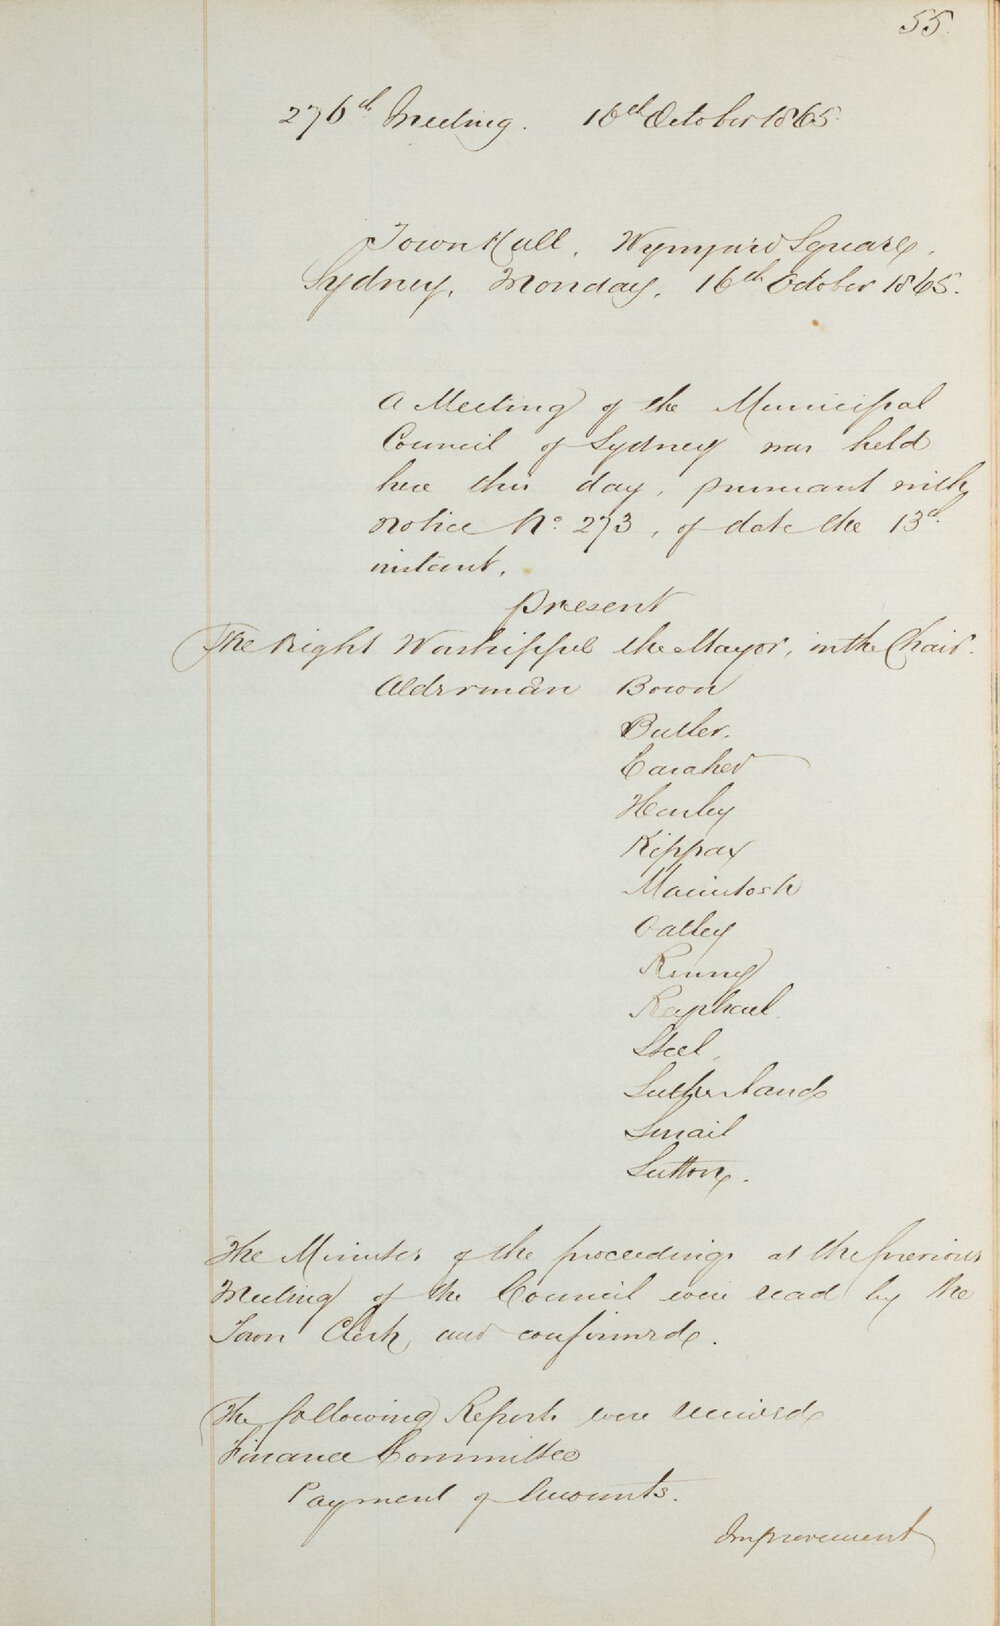 55.
276th Meeting. 16th October 1865
Town Hall, Wynyard Square,
Sydney, Monday, 16th October 1865.
A Meeting of the Municipal
Council of Sydney was held
here this day, pursuant with
notice No. 273, of date the 13th
instant.
Present
The Right Worshipful the Mayor, in the Chair.
Alderman Bown
Butler.
Caraher
Hurley
Kippax
Macintosh
Oatley
Renny
Raphael.
Steel,
Sutherland
Smail
Sutton.
The Minutes of the proceedings at the previous
Meeting of the Council were read by the
Town Clerk, and confirmed.
The following Reports were received
Finance Committee
Payment of Accounts.
Improvement